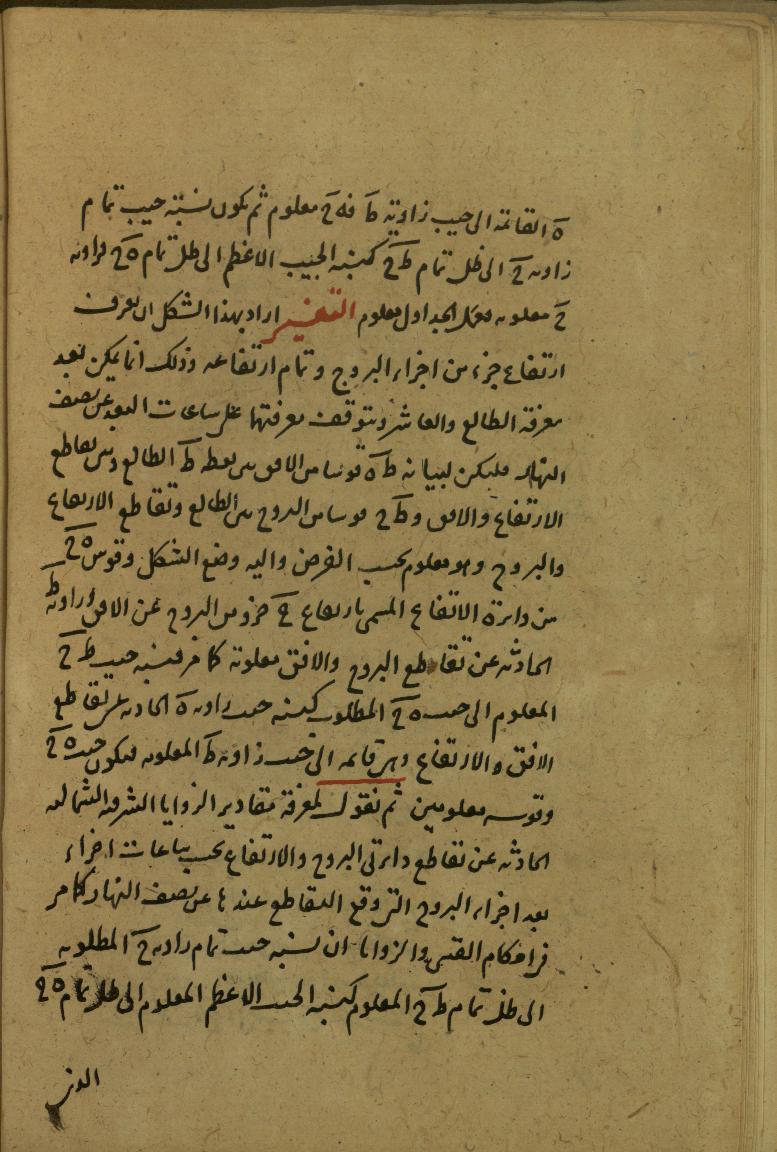 ه القائمة الى جيب زاوية ط فه ح معلوم ثم يكون نسبة جيب تمام
زاوية ح الى ظل تمام ط ح كنسبة الجيب الاعظم الى ظل تمام ه ح فزاوية
ح معلومه الجداول معلوم التفسير اراد بهذا الشكل ان يعرف
ارتفاع جزء من اجزاء البروج وتمام ارتفاعه وذلك انما يمكن بعد
معرفة الطالع والعاشر ويتوقف معرفتها على ساعات البعد عن نصف
النهار فليكن لبيانه ط ه قوسا من الافق بين نقطة ط الطالع وبين تقاطع
الارتفاع والافق و ط ح قوسا من البروج بين الطالع وتقاطع الارتفاع
والبروج وهو معلوم بحسب الفرض واليه وضع الشكل وقوس ه ح
من دائرة الاتفاع المسمى بارتفاع ح جزء من البروج عن الافق وزاوية ط
الحادثة عن تقاطع البروج والافق معلومة كما مر فنسبة جيب ط ح
المعلوم الى جيب ه ح المطلوب كنسبة جيب زاوية ه الحادثة عن تقاطع
الافق والارتفاع وهى قائمه الى جيب زاوية ط المعلومه فيكون جيب ه ح
وقوسه معلومين ثم نقول لمعرفة مقادير الزوايا الشرقية الشمالية
الحادثة عن تقاطع دائرتى البروج والارتفاع بحسب ساعات اجزاء
بعد اجزاء البروج التى وقع التقاطع عندها عن نصف النهار كما مر
فى احكام القسى والزوايا ان نسبة جيب تمام زاوية ح المطلوبه
الى ظل تمام ط ح المعلوم كنسبة الجيب الاعظم المعلوم الى ظل تمام ه ح